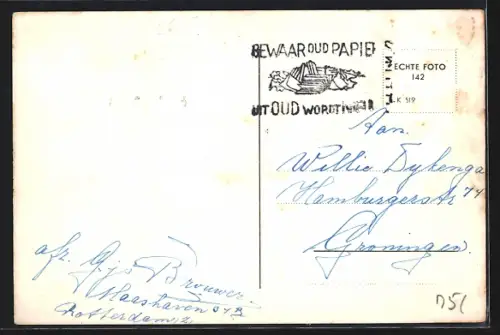 BEWAAR OUD PAPIER
UIT OUD WORDT
ECHTE FOTO
142
K 519
Aan.
Willie Dykenga
Hamburgerstr 74
Groningen.
afz. Gijs Brouwer.
Maashaven
Rotterdam